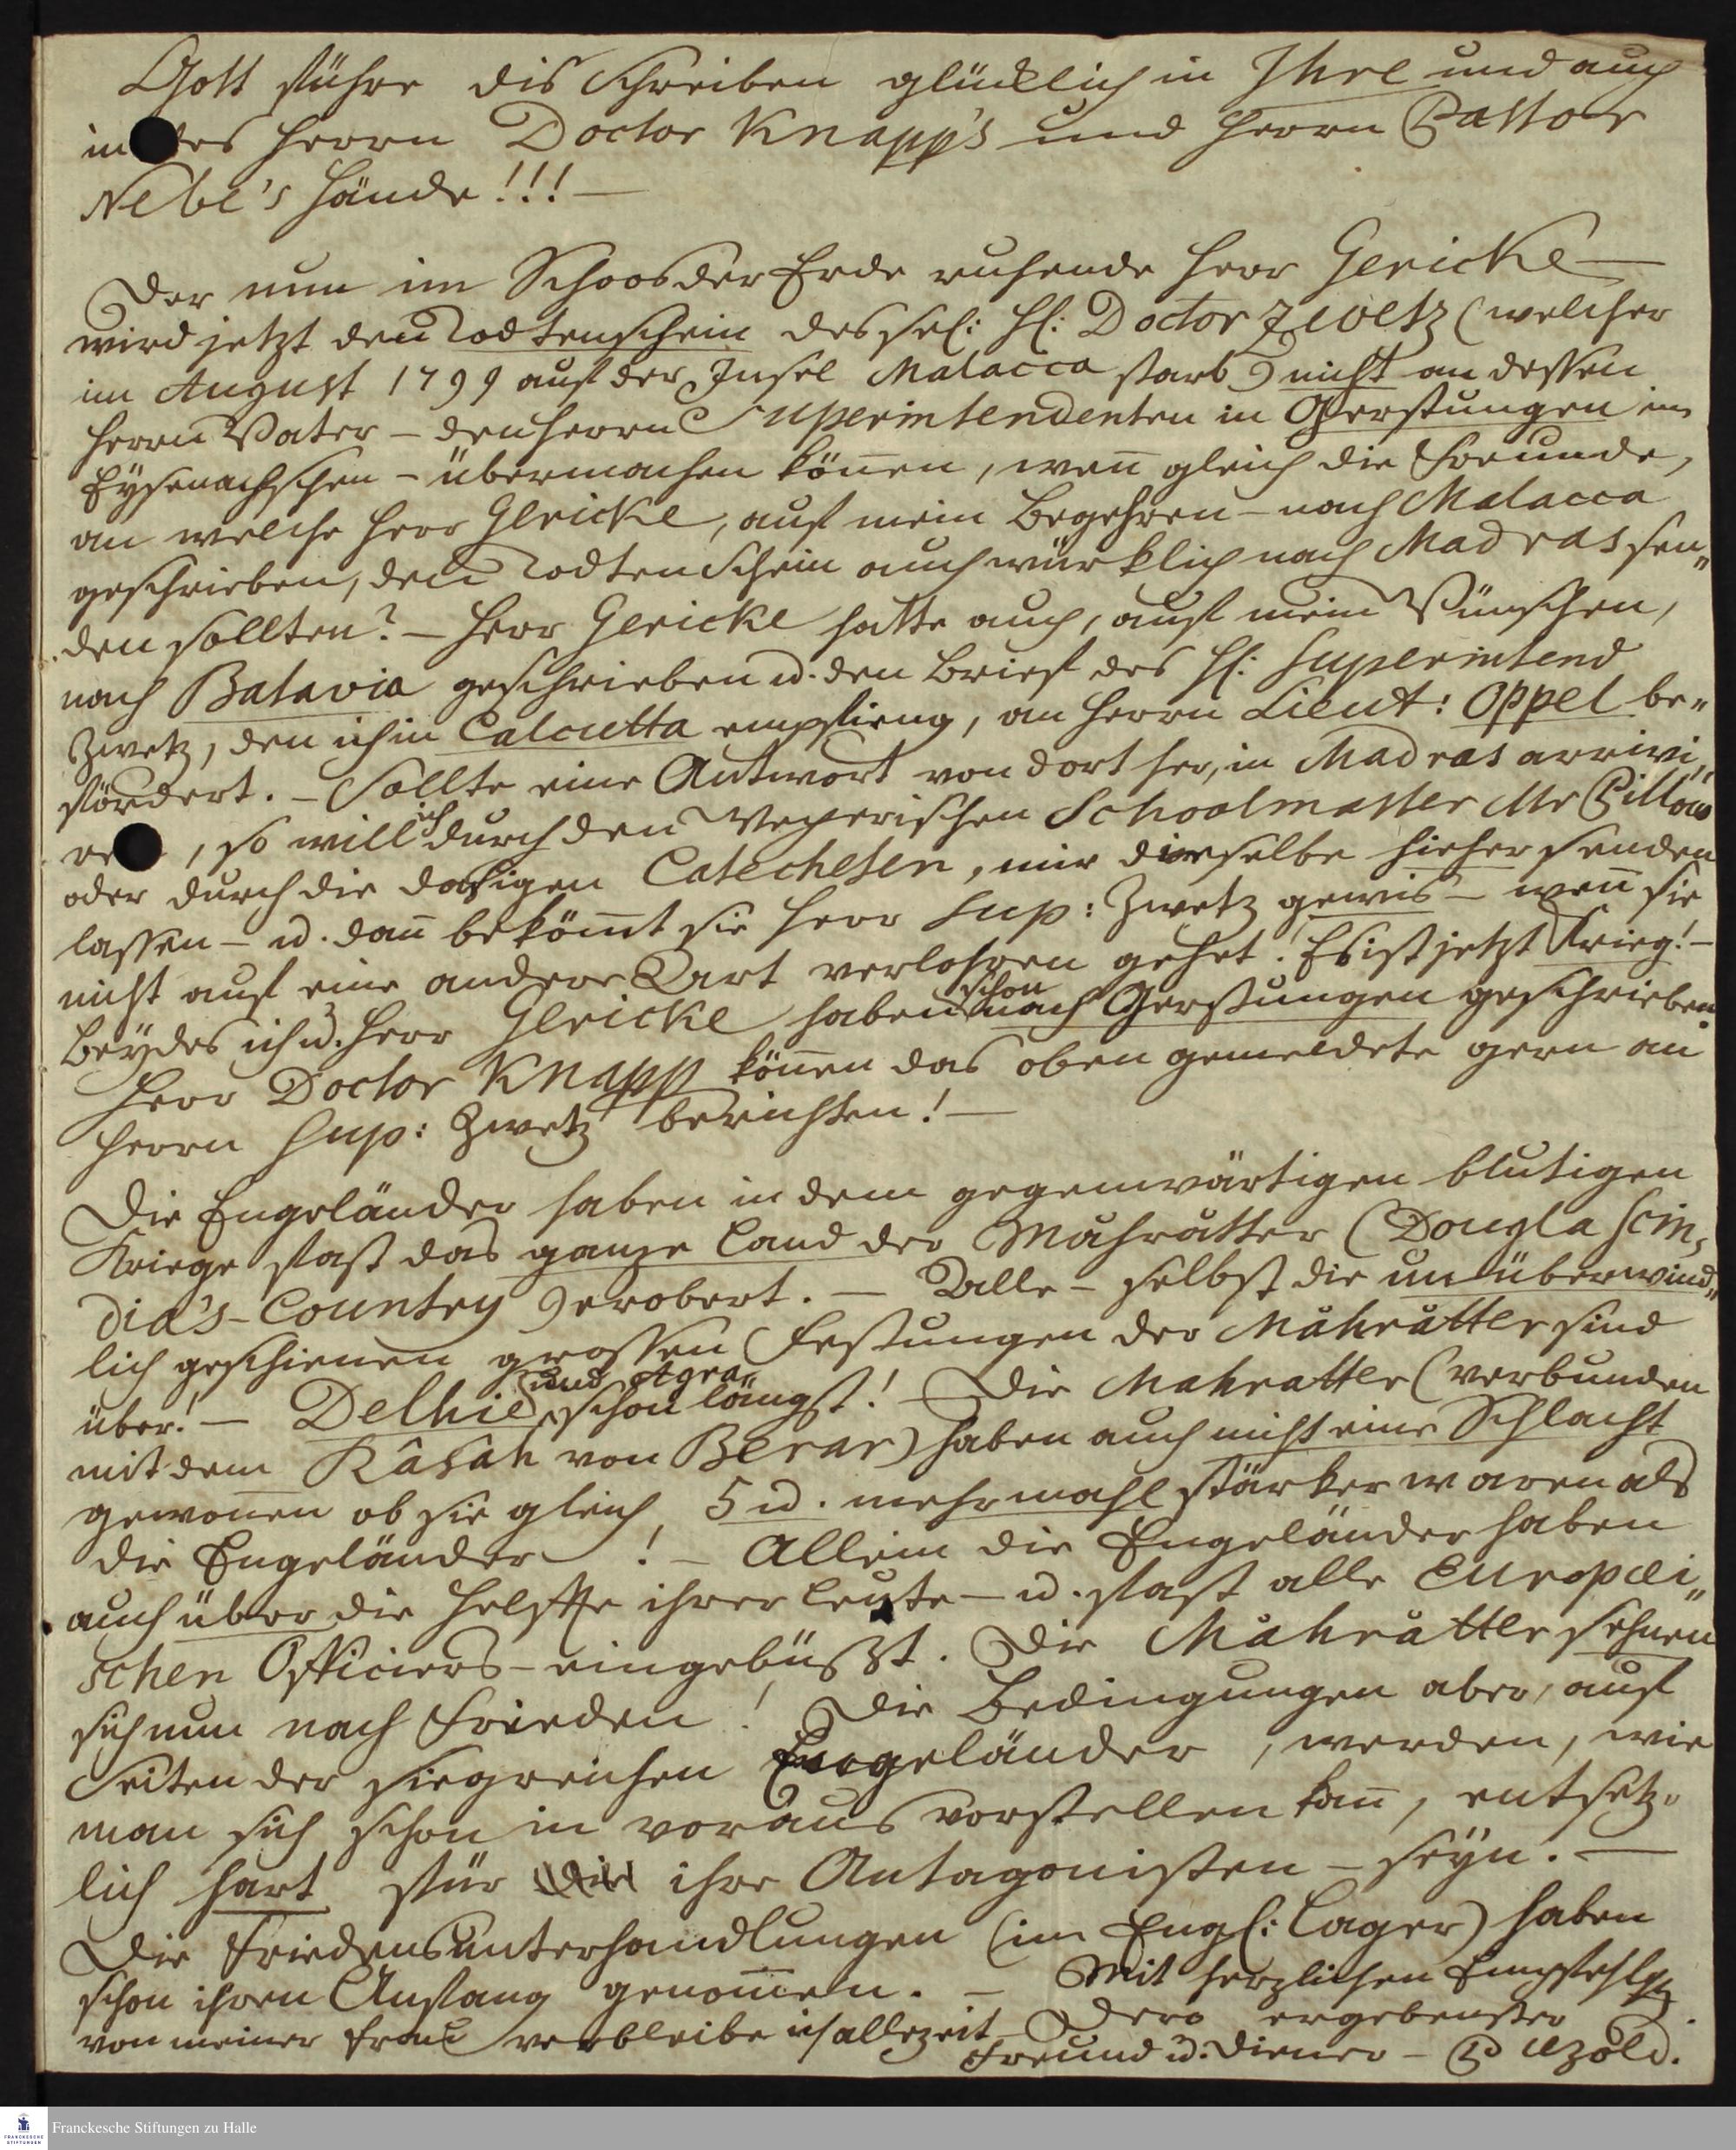 Gott führe dis Schreiben glücklich in Ihre und auch
in des Herrn Doctor Knapp's und Herrn Pastor
Nebe's Hände!!! —
Der nun im Schoos der Erde ruhende Herr Gericke —
wird jetzt den Todtenschein des sel: H: Doctor Zwetz (welcher
im August 1799 auf der Insel Malacca starb) nicht an dessen
Herrn Vater – den Herrn Superintendenten in Gerstungen im
Eysenachschen – übermachen können, wen̄ gleich die Freunde,
an welche Herr Gericke, auf mein Begehren – nach Malacca
geschrieben, den Todtenschein auch würklich nach Madras sen„
den sollten? – Herr Gericke hatte auch, auf mein Wünschen,
nach Batavia geschrieben u. den Brief des H: Superintend
Zwetz, den ich in Calcutta empfieng, an Herrn Lieut: Oppel be„
fördert. – Sollte eine Antwort von dort her, in Madras arrivi„
re, so will ich durch den Veperischen Schoolmaster Mr
oder durch die dasigen Catecheten, mir dieselbe hieher senden
lassen – u. dan̄ beköm̄t sie Herr Sup: Zwetz gewis – wen̄ sie
nicht auf eine andere Art verlohren gehet. Es ist jetzt Krieg! –
Beydes ich u. Herr Gericke haben schon nach Gerstungen geschrieben.
Herr Doctor Knapp kön̄en das oben gemeldete gern an
Herrn Sup: Zwetz berichten! —
Die Engeländer haben in dem gegenwärtigen blutigen
Kriege fast das ganze Land der Mahratter (Dougla Scin„
dia's – Country) erobert. — Alle – selbst die unüberwind„
lich geschienen grossen Festungen der Mahratter sind
über! — Delhie und Agra schon längst! Die Mahratter (verbunden
mit dem Râsâh von Berar) haben auch nicht eine Schlacht
gewon̄en ob sie gleich 5 u. mehrmahl stärker waren als
die Engeländer! – Allein die Engeländer haben
auch über die Helfte ihrer Leute – u. fast alle Europæi„
schen Officiers – eingebüsst. Die Mahratter sehnen
sich nun nach Frieden! Die Bedingungen aber, auf
Seiten der siegreichen Engeländer, werden, wie
man sich schon in voraus vorstellen kan̄, entsetz„
lich hart für ihre Antagonisten – seyn. —
Die Friedensunterhandlungen (im Engl: Lager) haben
schon ihren Anfang genom̄en. – Mit herzlichen Empfehlg
von meiner Frau verbleibe ich allezeit Dero ergebenster
Freund u. Diener – Pezold.
Franckesche Stiftungen zu Halle
FRANCKESCHE
STIFTUNGEN